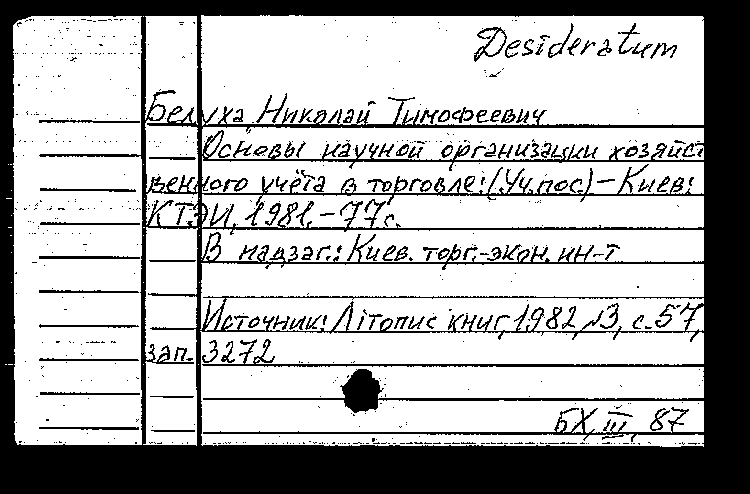 Desideratum
Белуха Николай Тимофеевич
Основы научной организации хозяйст
венного учёта в торговле:(Уч.пос.)-Киев:
КТЭИ, 1981.-77с.
В надзаг.: Киев. торг.-экон. ин-т
Источник: Лiтопис книг, 1982, №3, с.57,
зап. 3272
БХ, III, 87